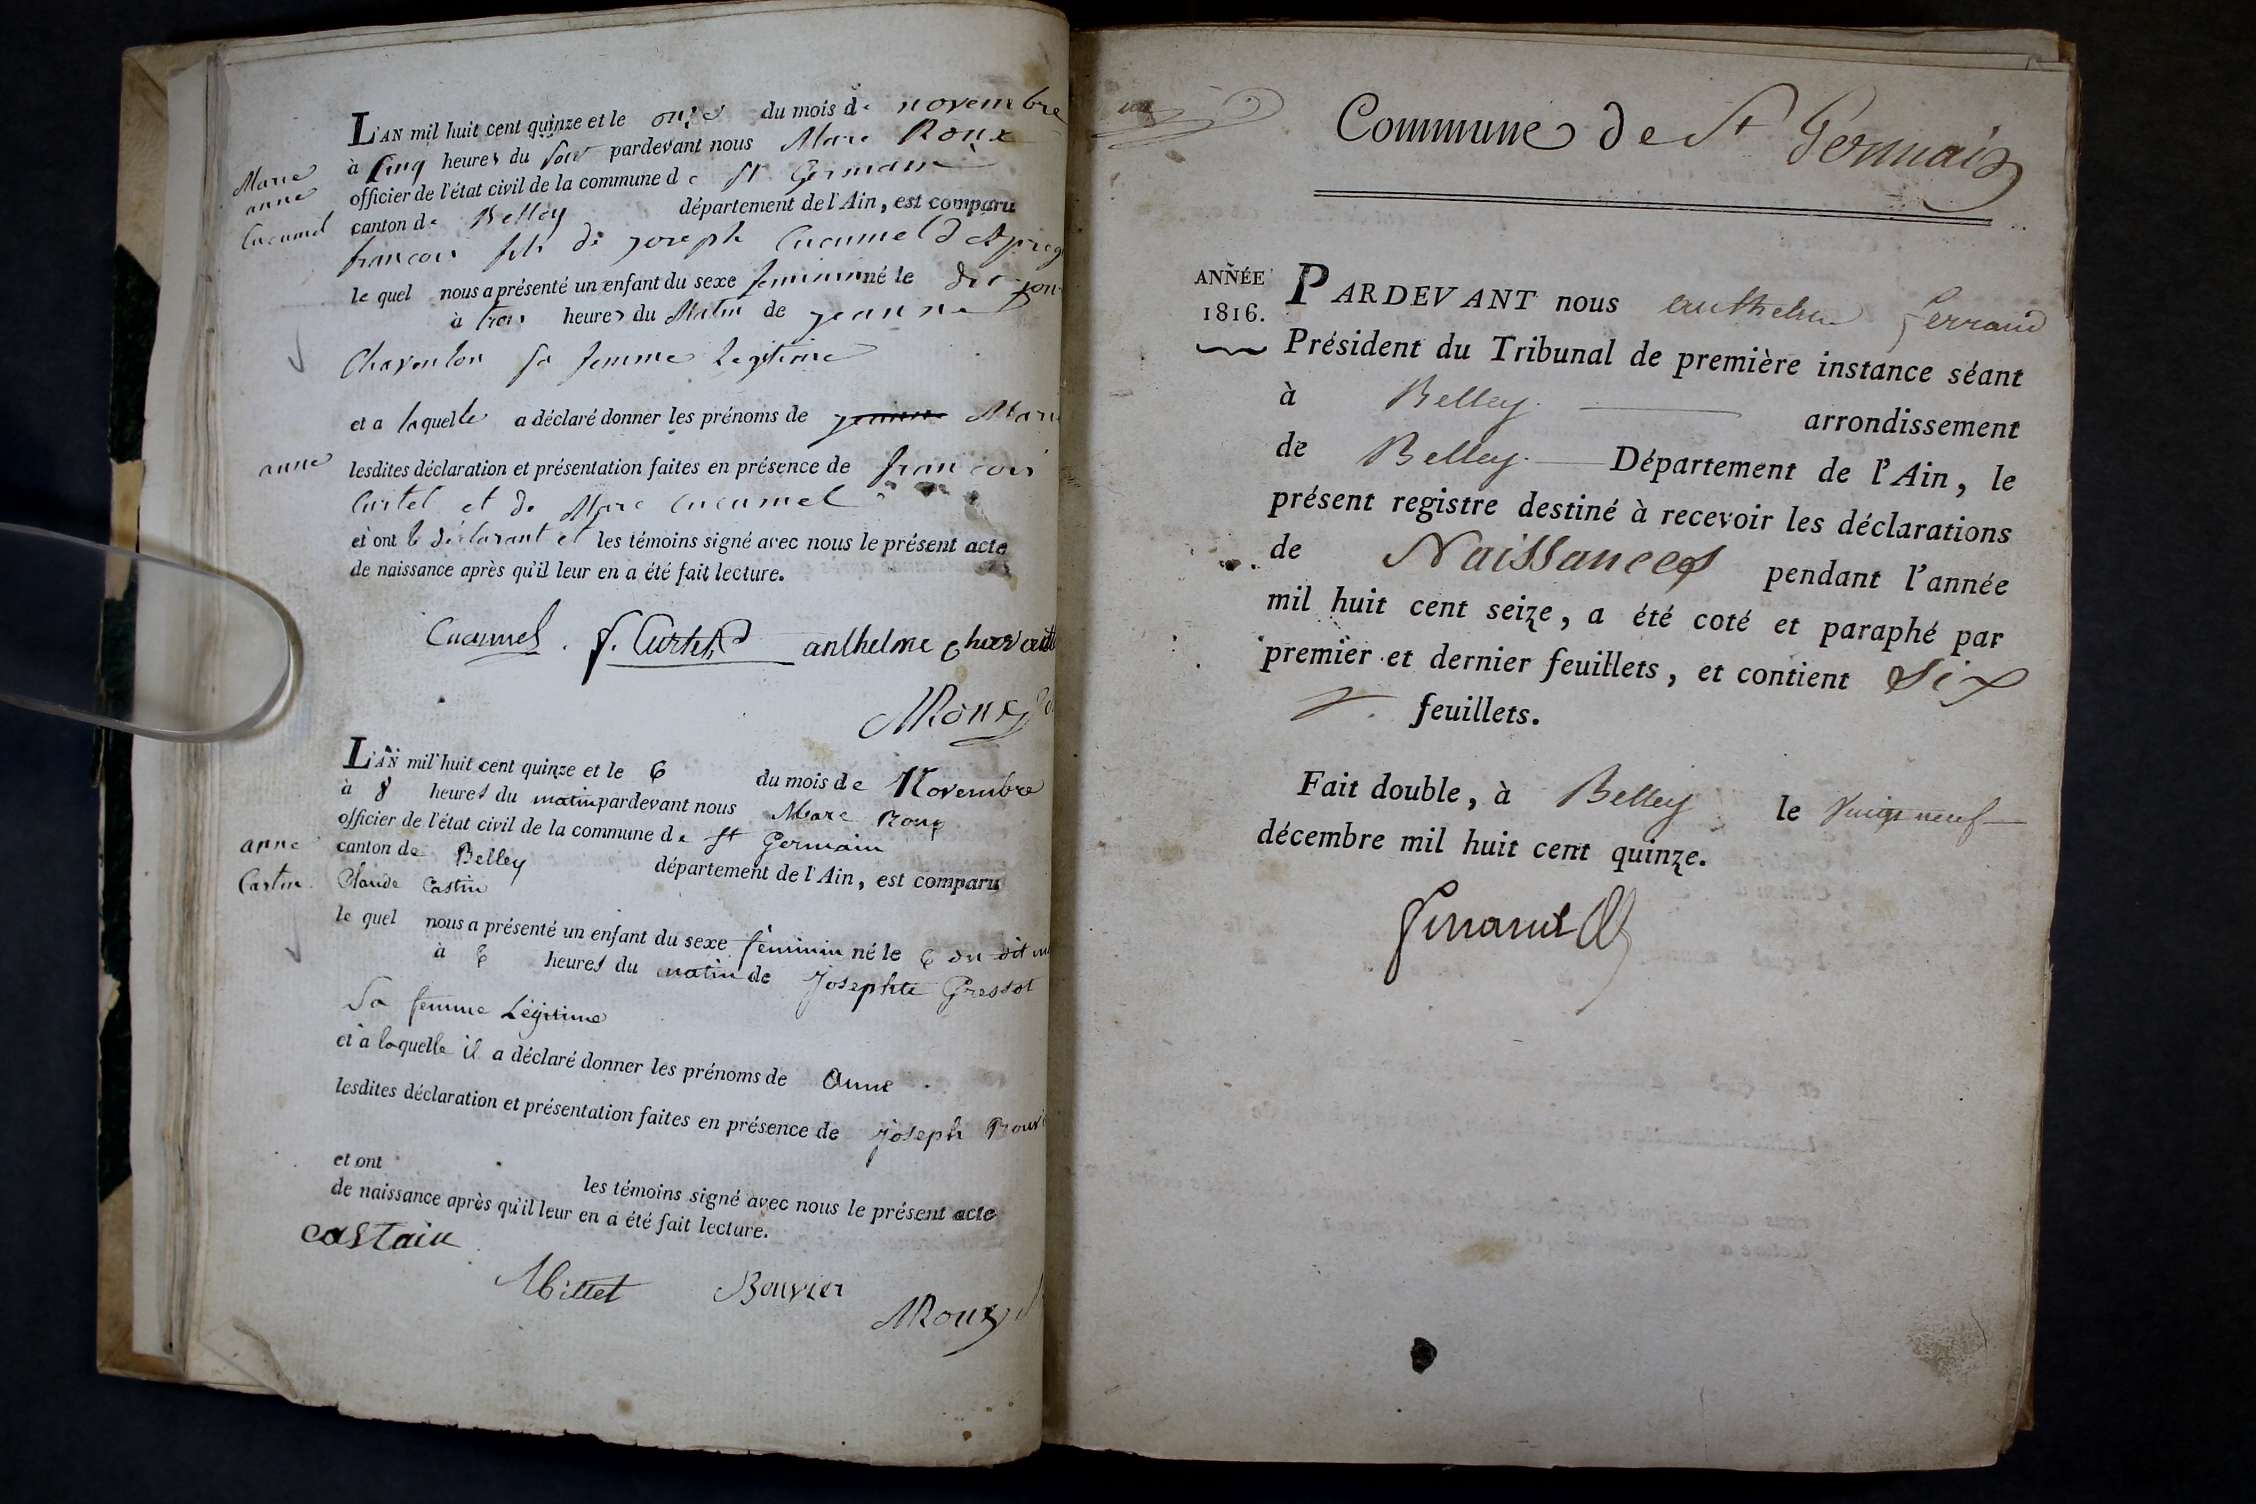 L'AN mil huit cent quinze et le onze du mois de novembre
à Cinq heures du Soir pardevant nous Marc Roux
officier de l'état civil de la commune de St Germain
canton de Belley département de l'Ain, est comparu
Marie
anne
Cucumel
francois fils de joseph Cucumel
le quel nous a présenté un enfant du sexe feminin né le
à trois heures du Matin de jeanne
sa femme Legitime
et a laquelle a déclaré donner les prénoms de jeanne Marie
anne
lesdites déclaration et présentation faites en présence de francois
Curtet et de Marc Cucumel
et ont le déclarant et les témoins signé avec nous le présent acte
de naissance après qu'il leur en a été fait lecture.
Cucumel. f. Curtet anthelme
MRoux
L'AN mil huit cent quinze et le 6 du mois de Novembre
à 8 heures du matin pardevant nous Marc Roux
officier de l'état civil de la commune de St Germain
canton de Belley département de l'Ain, est comparu
anne
Castin
Claude Castin
le quel nous a présenté un enfant du sexe féminin né le 6 du dit
à 6 heures du matin de Josephte Gressot
Sa femme Légitime
et à laquelle il a déclaré donner les prénoms de Anne.
lesdites déclaration et présentation faites en présence de joseph
et ont les témoins signé avec nous le présent acte
de naissance après qu'il leur en a été fait lecture.
castain
Millet Bouvier
MRoux
Commune de St Germain
ANNÉE
1816.
PARDEVANT nous anthelme Ferrand
Président du Tribunal de première instance séant
à Belley arrondissement
de Belley. Département de l'Ain, le
présent registre destiné à recevoir les déclarations
de Naissances pendant l'année
mil huit cent seize, a été coté et paraphé par
premier et dernier feuillets, et contient Six
feuillets.
Fait double, à Belley le vingt neuf
décembre mil huit cent quinze.
Ferrand